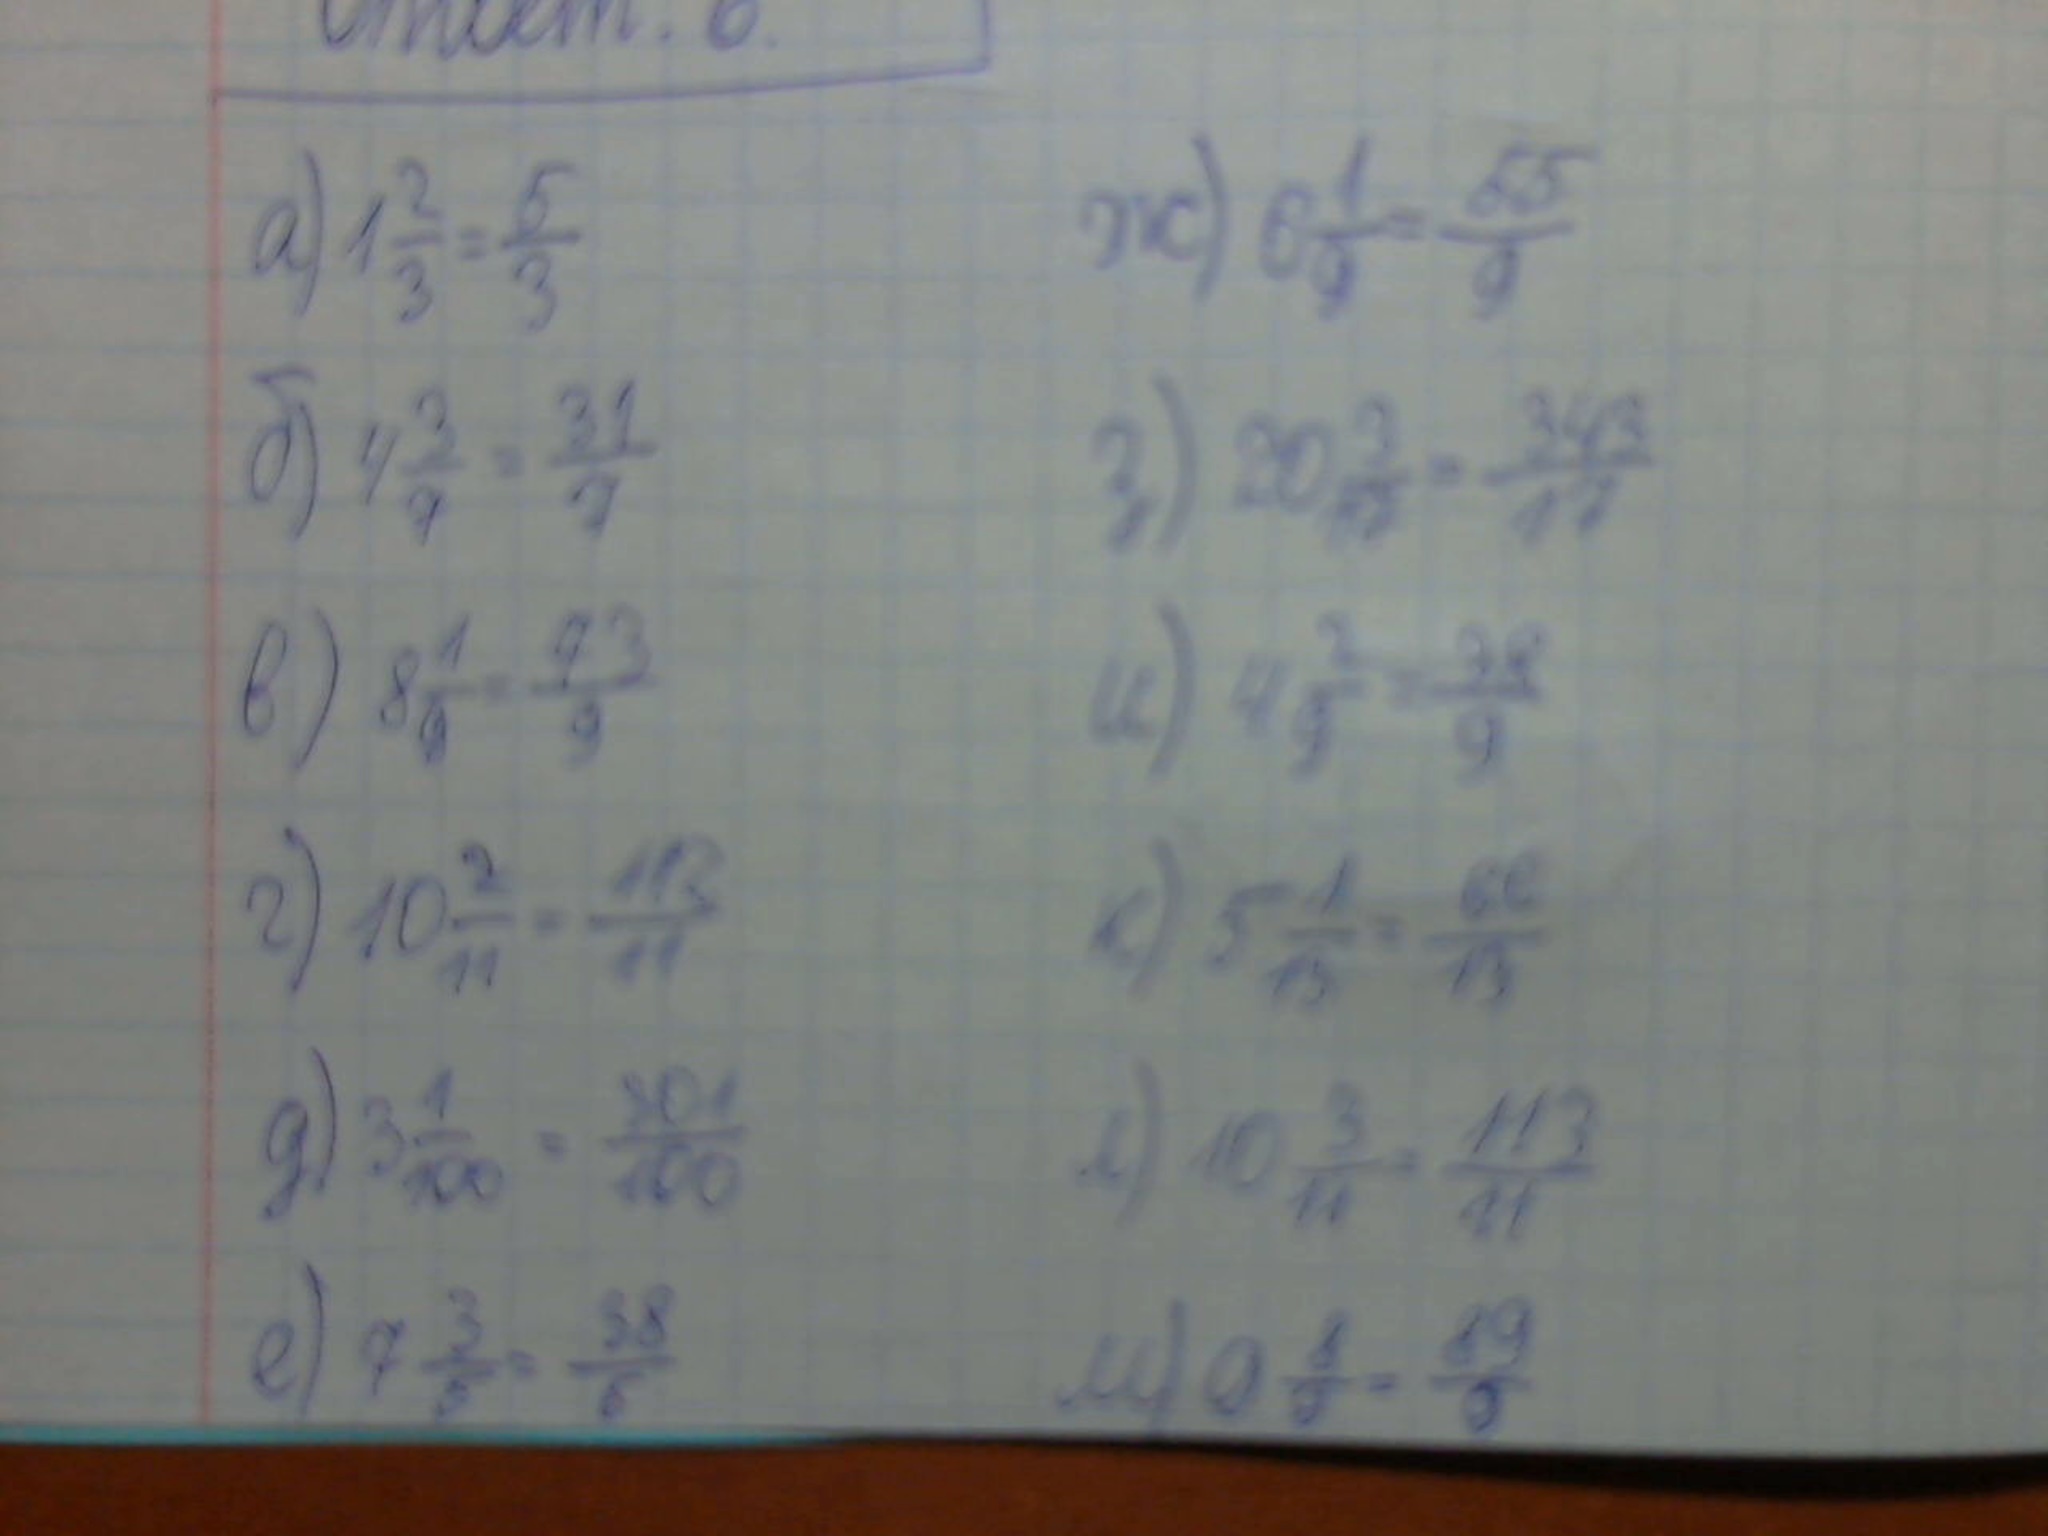 Ответ. 6.
а) 1 2/3 = 5/3
б) 4 3/7 = 31/7
в) 8 1/9 = 73/9
г) 10 2/11 = 113/11
д) 3 1/100 = 301/100
е) 7 3/5 = 38/5
ж) 6 1/9 = 55/9
з) 20 3/17 = 343/17
и) 4 2/9 = 38/9
к) 5 1/13 = 66/13
л) 10 3/11 = 113/11
м) 9 8/9 = 89/9